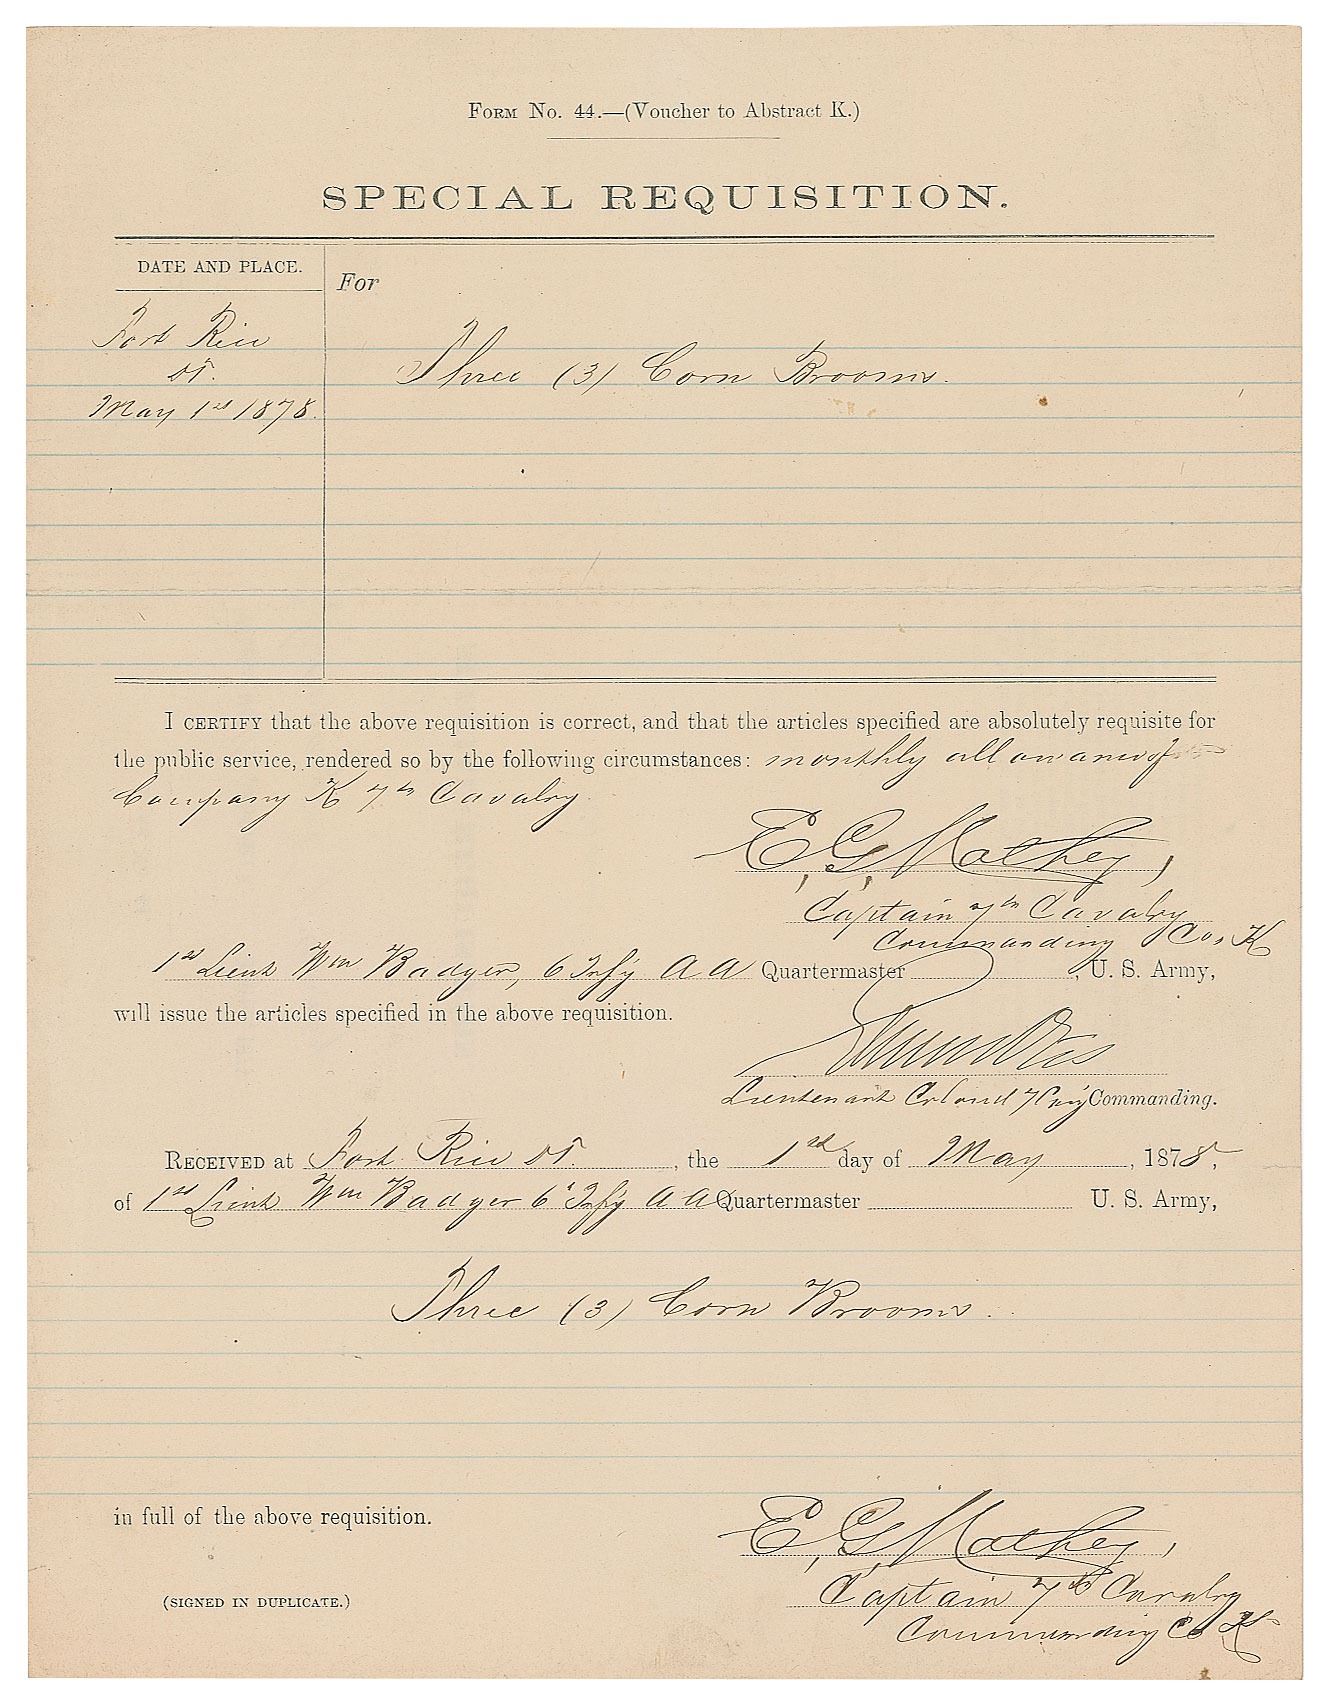 Form No. 44.—(Voucher to Abstract K.)
SPECIAL REQUISITION.
DATE AND PLACE.
For
Fort Rice
DT.
May 1st 1878.
Three (3) Corn Brooms.
I CERTIFY that the above requisition is correct, and that the articles specified are absolutely requisite for
the public service, rendered so by the following circumstances: monthly allowance of
Company K 7th Cavalry.
E. G. Mathey,
Captain 7th Cavalry
Commanding Co. K
1st Lieut Wm Badger, 6 Infy A A Quartermaster , U. S. Army,
will issue the articles specified in the above requisition.
Lieutenant Colonel 7 Cavy Commanding.
RECEIVED at Fort Rice DT. , the 1st day of May , 1878,
of 1st Lieut Wm Badger 6th Infy A A Quartermaster U. S. Army,
Three (3) Corn Brooms.
in full of the above requisition.
E. G. Mathey,
Captain 7th Cavalry
Commanding Co K
(SIGNED IN DUPLICATE.)